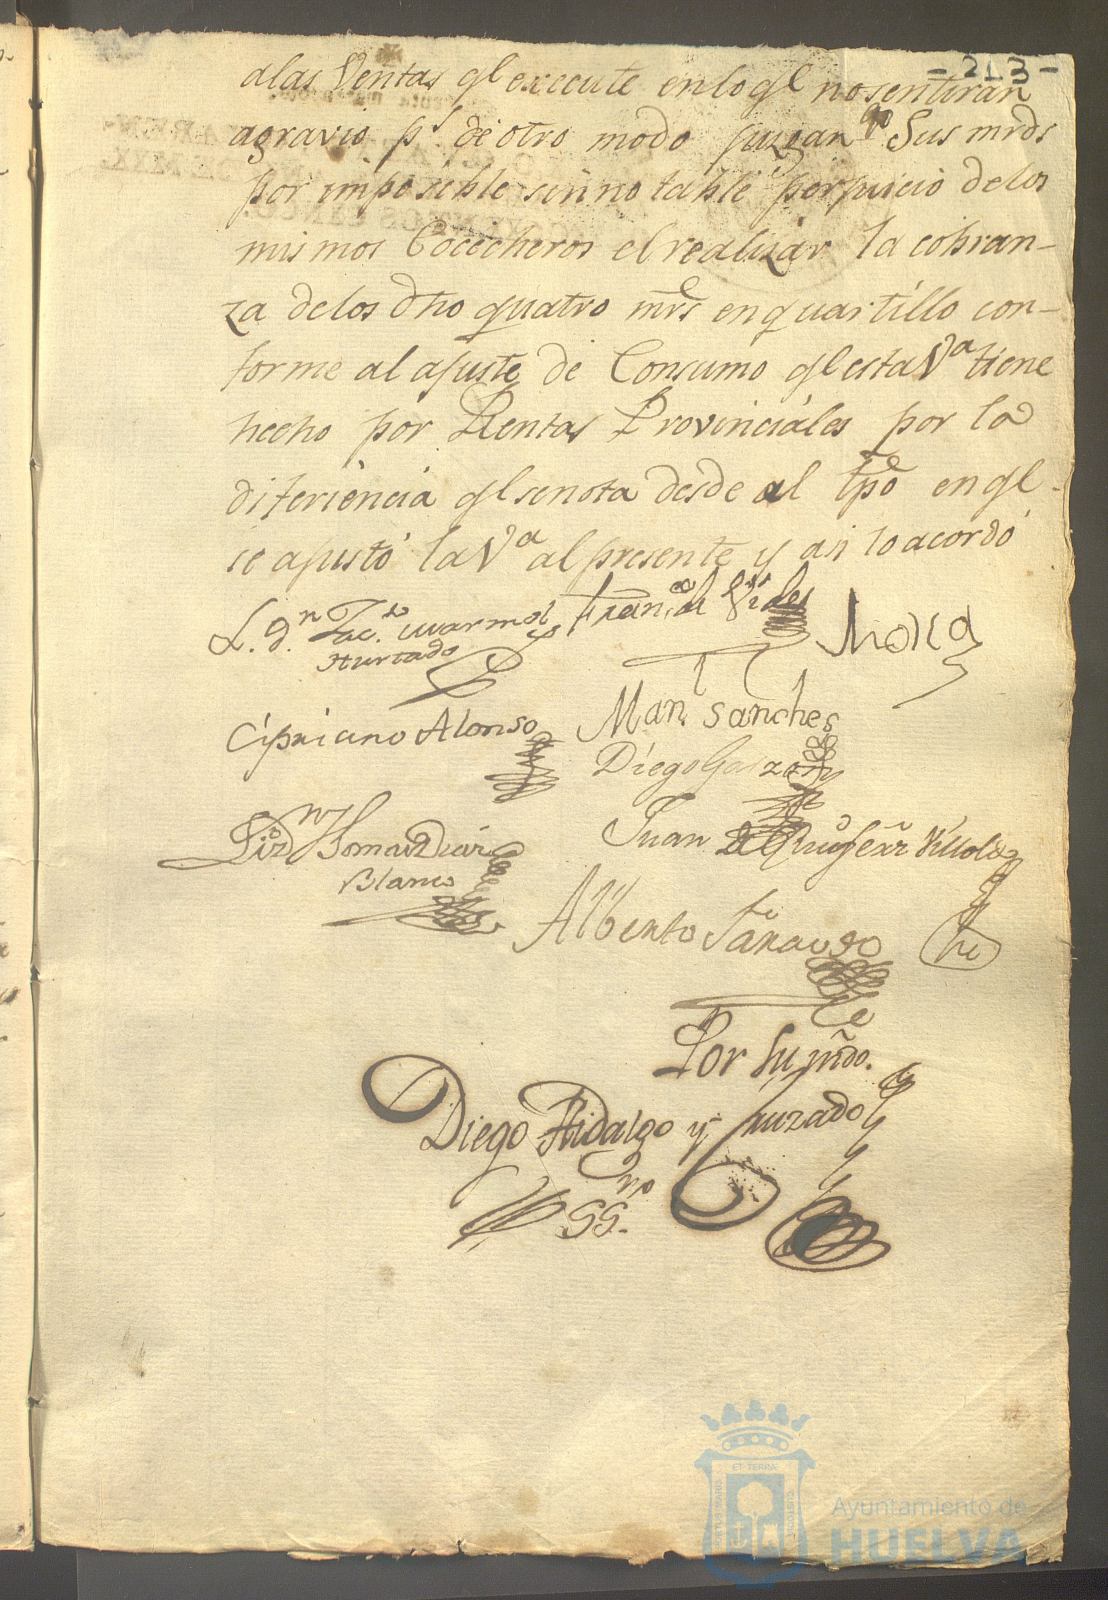 -213-
alas Ventas ql execute enlo ql nosentiran
agravio pr. de otro modo juzgan qe Sus mrds
por imposible sin notable perjuicio delos
mismos Cocecheros el realizar la cobran-
za delos dho quatro mrs en quartillo con-
forme al ajuste de Consumo ql esta Va tiene
hecho por Rentas Provinciales por la
diferiencia ql senota desde al tpo en ql
se ajustó la Va al presente y asi lo acordó
L. Dn. Jac.to Marmol y
Hurtado
Fran.co de Vides
Mora
Cipriano Alonso
Man. Sanches
Diego Garzon
Dn Thomas Diaz
Blanco
Juan
Alberto
Por su mdo.
Diego Hidalgo y Luzado
SS.no
Ayuntamiento de
HUELVA